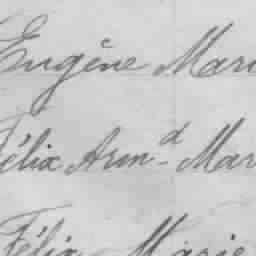 Eugène Mari
Félix Arm-d Mar
Félix Marie